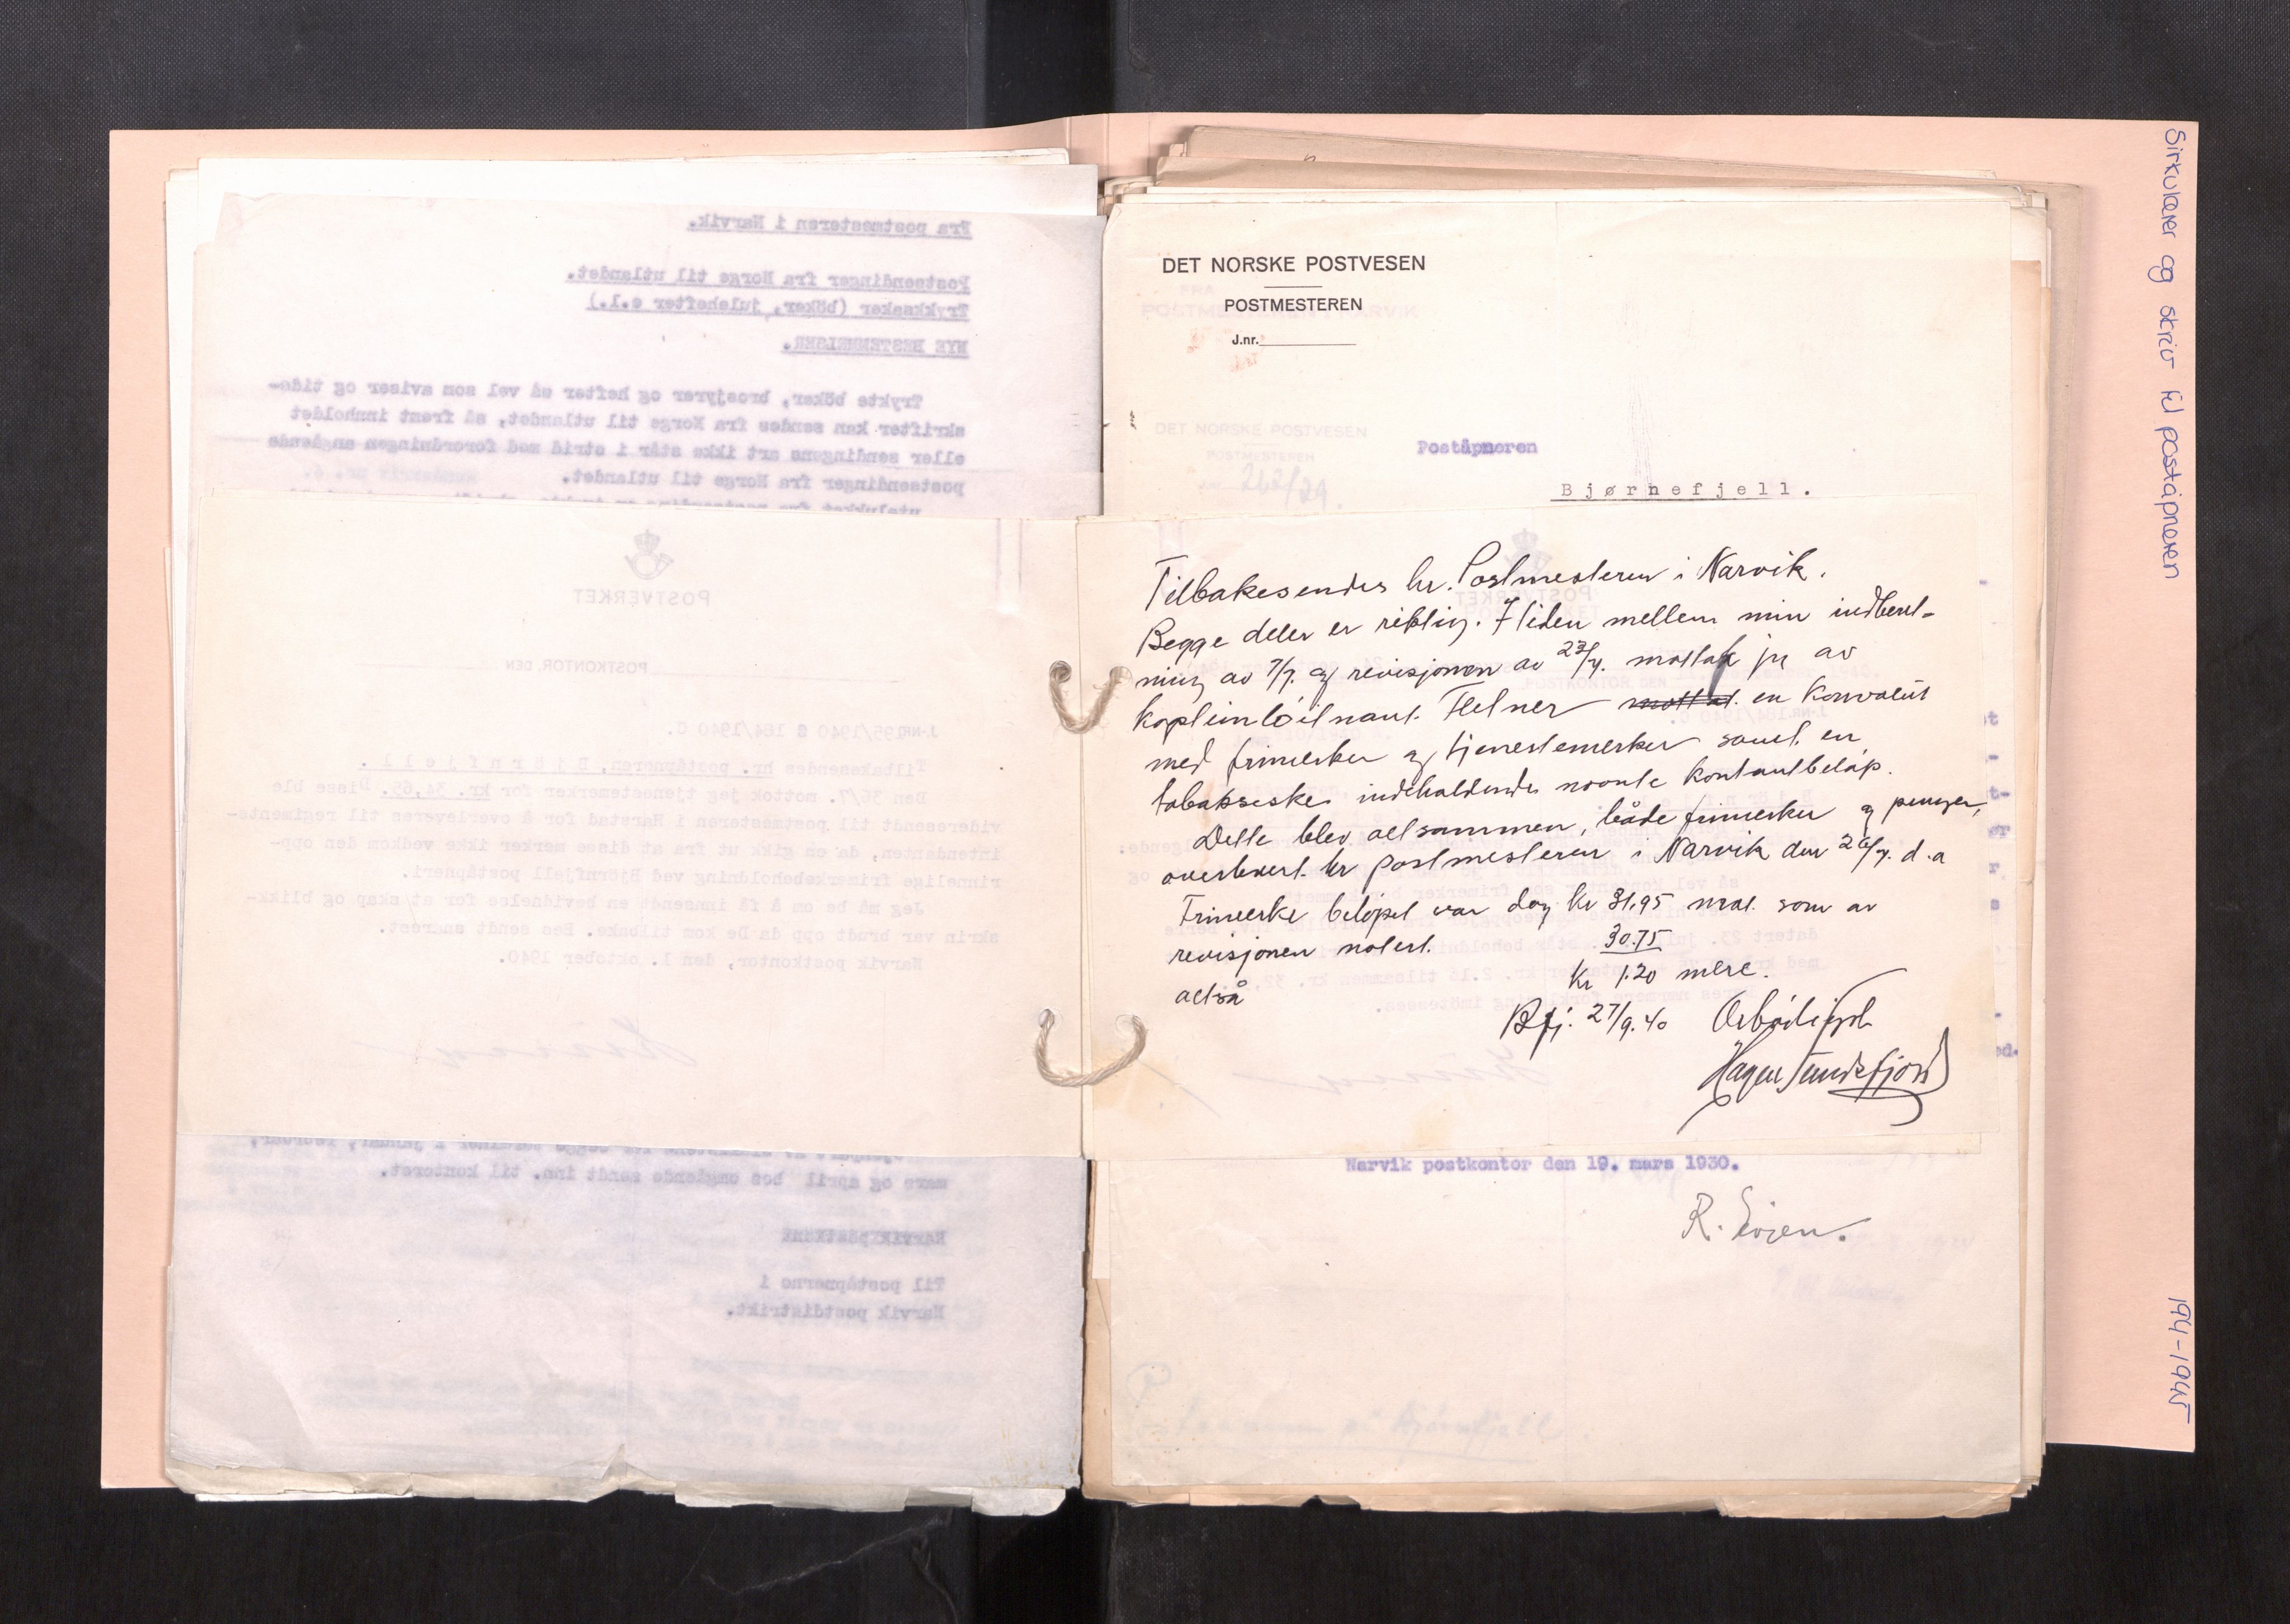 Fra postmesteren i Narvik.
Postsendinger fra Norge til utlandet.
Trykksaker (böker, julehefter e.l.)
NYE BESTEMMELSER.
Trykte böker, brosjyrer og hefter så vel som aviser og tids-
skrifter kan sendes fra Norge til utlandet, så fremt innholdet
eller sendingens art ikke står i strid med forordningen angående
postsendinger fra Norge til utlandet.
POSTVERKET
POSTKONTOR, DEN
J.NR. 195/1940 C 184/1940 C.
Tilbakesendes hr. poståpneren, Björnfjell.
Den 36/7. mottok jeg tjenestemerker for kr. 34,65. Disse ble
videresendt til postmesteren i Harstad for å overleveres til regiments-
intendanten, da en gikk ut fra at disse merker ikke vedkom den opp-
rinnelige frimerkebeholdning ved Björnfjell poståpneri.
Jeg må be om å få innsendt en bevidnelse for at skap og blikk-
skrin var brudt opp da De kom tilbake. Bes sendt snarest.
Narvik postkontor, den 1. oktober 1940.
mars og april bes omgående sendt inn. til kontoret.
Narvik postkont
Til poståpnerne i
Narvik postdistrikt.
DET NORSKE POSTVESEN
POSTMESTEREN
J.nr.
Poståpneren
Bjørnefjell.
Tilbakesendes hr. Postmesteren i Narvik.
Begge deler er riktig. I tiden mellem min indberet-
ning av 7/7. og revisjonen av 23/7. mottok jeg av
kapteinlöitnant Fletner mottat en konvolut
med frimerker og tjenestemerker samt en
tobakseske indeholdende noonte kontantbeløp.
Dette blev altsammen, både frimerker og penger,
overlevert hr postmesteren i Narvik den 26/7. d.a
Frimerke beløpet var dog kr 31.95 mot som av
revisjonen notert. 30.75
altså kr 1.20 mere.
Bfj. 27/9.40 Ærbödigst
Hagen Sundsfjord
Narvik postkontor den 19. mars 1930.
R. Evjen.
Sirkulærer og skriv til poståpneren
194-1945